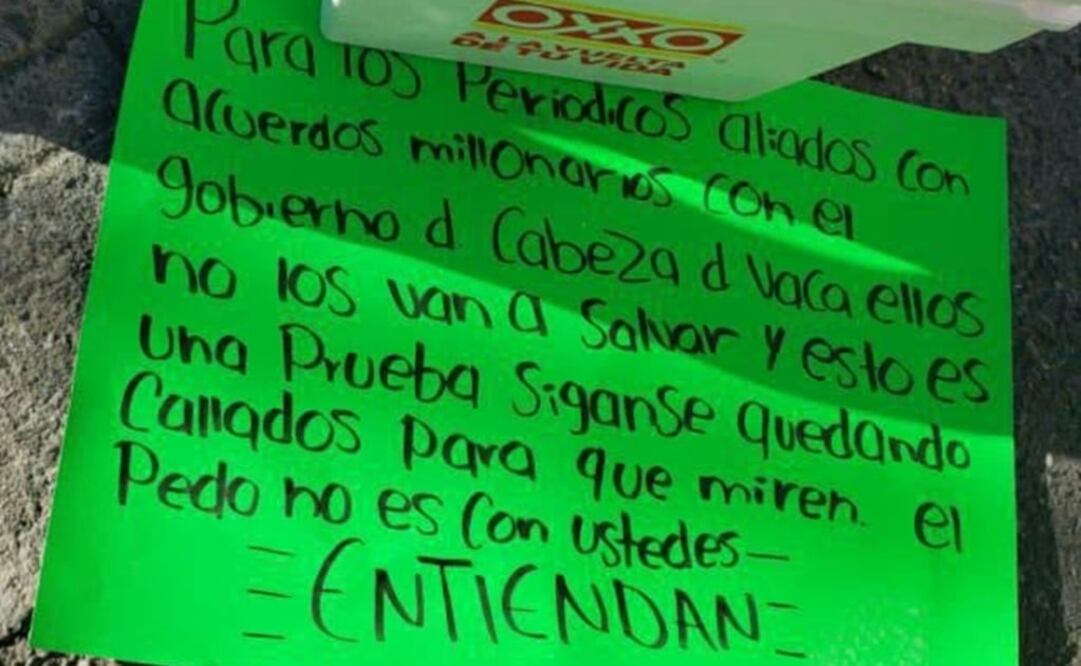 OXXO
A LA VUELTA
DE TU VIDA
Para los Periodicos aliados con
acuerdos millonarios con el
gobierno d. Cabeza d Vaca ellos
no los van a Salvar y esto es
una Prueba Siganse quedando
Callados para que miren. el
Pedo no es Con ustedes—
ENTIENDAN